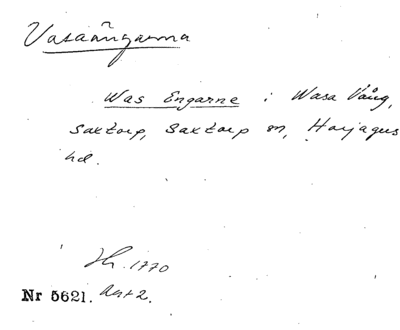 Vasaängarna
Was Engarne i Wasa Vång,
Saxtorp, Saxtorp sn, Harjagers
hd.
Hr. 1770
Nr 5621. Akt 2.